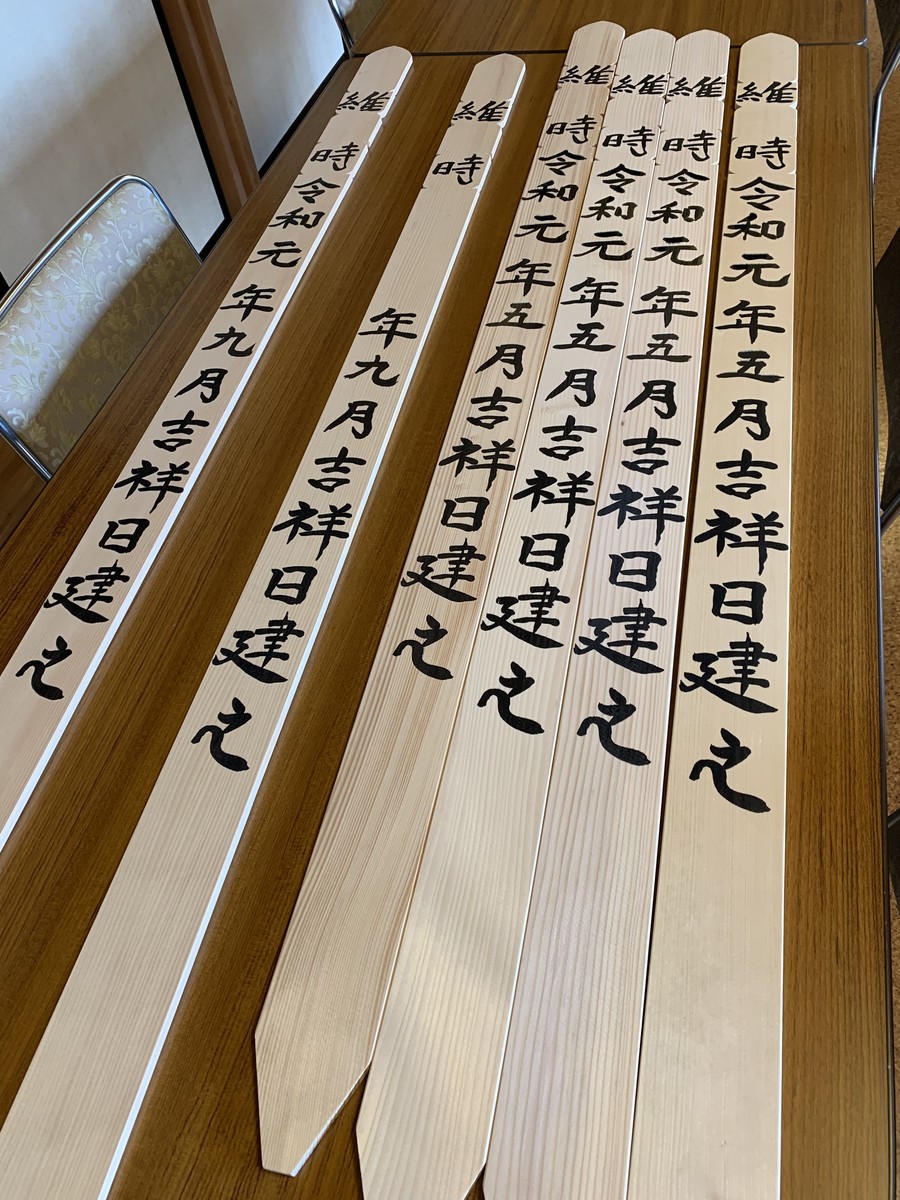 維時令和元年五月吉祥日建之
維時令和元年五月吉祥日建之
維時令和元年五月吉祥日建之
維時令和元年五月吉祥日建之
維時年九月吉祥日建之
維時令和元年九月吉祥日建之